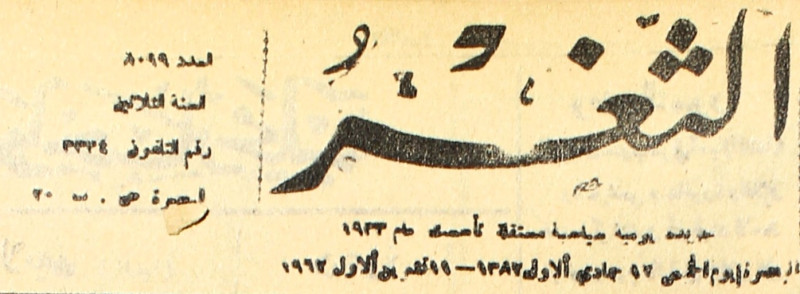 الثغر
العدد ٨٠٩٩
السنة الثلاثين
رقم التلفون ٣٣٣٤
البصرة ص . ب ٢٠
جريدة يومية سياسية مستقلة تأسست عام ١٩٣٣
البصرة يوم الخميس ١٣ جمادي الاولى ١٣٨٢ — ١١ تشرين الاول ١٩٦٢